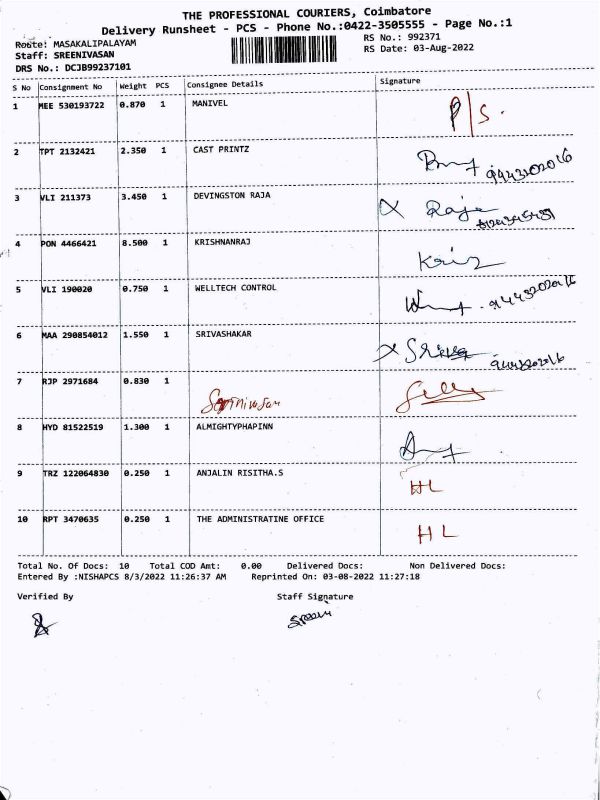 THE PROFESSIONAL COURIERS, Coimbatore
Delivery Runsheet - PCS - Phone No.:0422-3505555 - Page No.:1
Route: MASAKALIPALAYAM
RS No.: 992371
Staff: SREENIVASAN
RS Date: 03-Aug-2022
DRS No.: DCJB99237101
S No Consignment No Weight PCS Consignee Details Signature
1 MEE 530193722 0.870 1 MANIVEL P/S.
2 TPT 2132421 2.350 1 CAST PRINTZ
3 VLI 211373 3.450 1 DEVINGSTON RAJA X Raja
4 PON 4466421 8.500 1 KRISHNANRAJ
5 VLI 190020 0.750 1 WELLTECH CONTROL
6 MAA 290854012 1.550 1 SRIVASHAKAR X
7 RJP 2971684 0.830 1 Srinivasan
8 HYD 81522519 1.300 1 ALMIGHTYPHAPINN
9 TRZ 122064830 0.250 1 ANJALIN RISITHA.S HL
10 RPT 3470635 0.250 1 THE ADMINISTRATINE OFFICE HL
Total No. Of Docs: 10 Total COD Amt: 0.00 Delivered Docs: Non Delivered Docs:
Entered By :NISHAPCS 8/3/2022 11:26:37 AM Reprinted On: 03-08-2022 11:27:18
Verified By Staff Signature